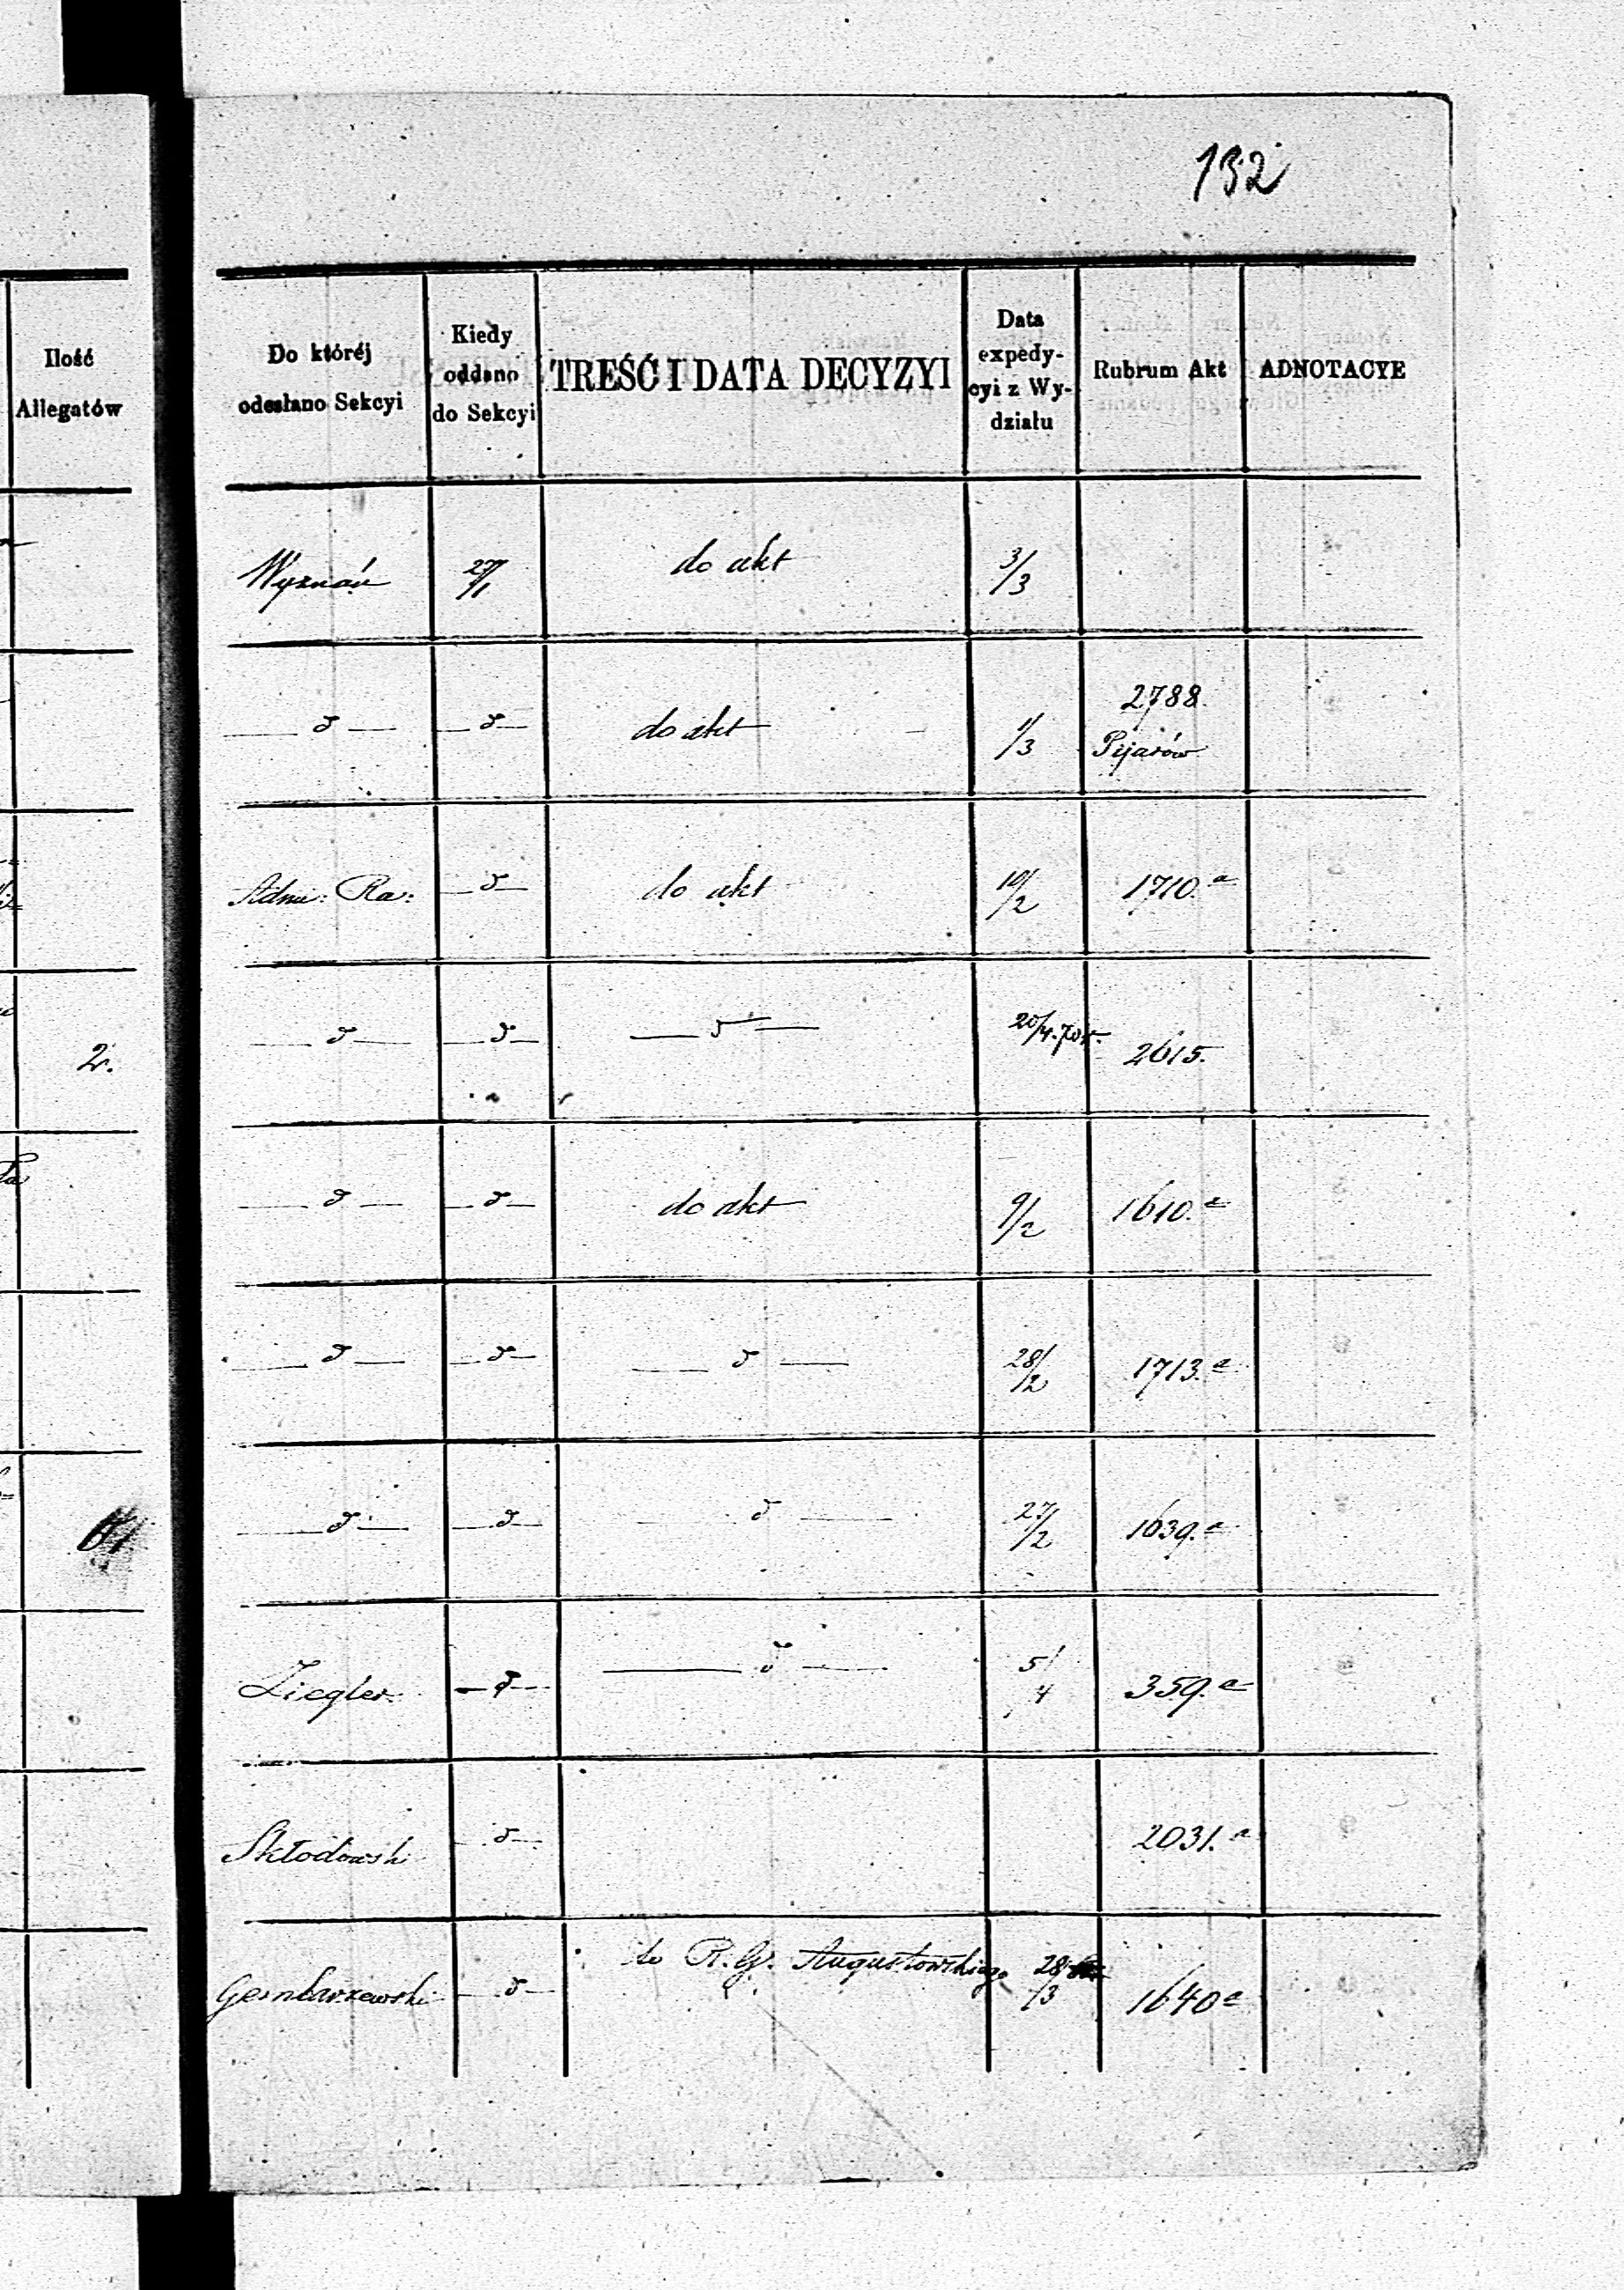 132
Ilość
Allegatów
Do któréj
odesłano Sekcyi
Kiedy
oddano
do Sekcyi
TREŚĆ I DATA DECYZYI
Data
expedy-
cyi z Wy-
działu
Rubrum Akt
ADNOTACYE
Wyznań 27/1 do akt 3/3
— d — — d — do akt 1/3 2788.
Pijarów
Adm: Ra: — d — do akt 10/2 1710.a
2. — d — — d — — d — 20/4. 2615.
— d — — d — do akt 9/2 1610.a
— d — — d — — d — 28/2 1713.a
— d — — d — — d — 27/2 1639.a
Ziegler. — d — — d — 5/4 359.a
Skłodowski — d — 2031.a
— d — do R. G. Augustowskiego 28/3 1640a